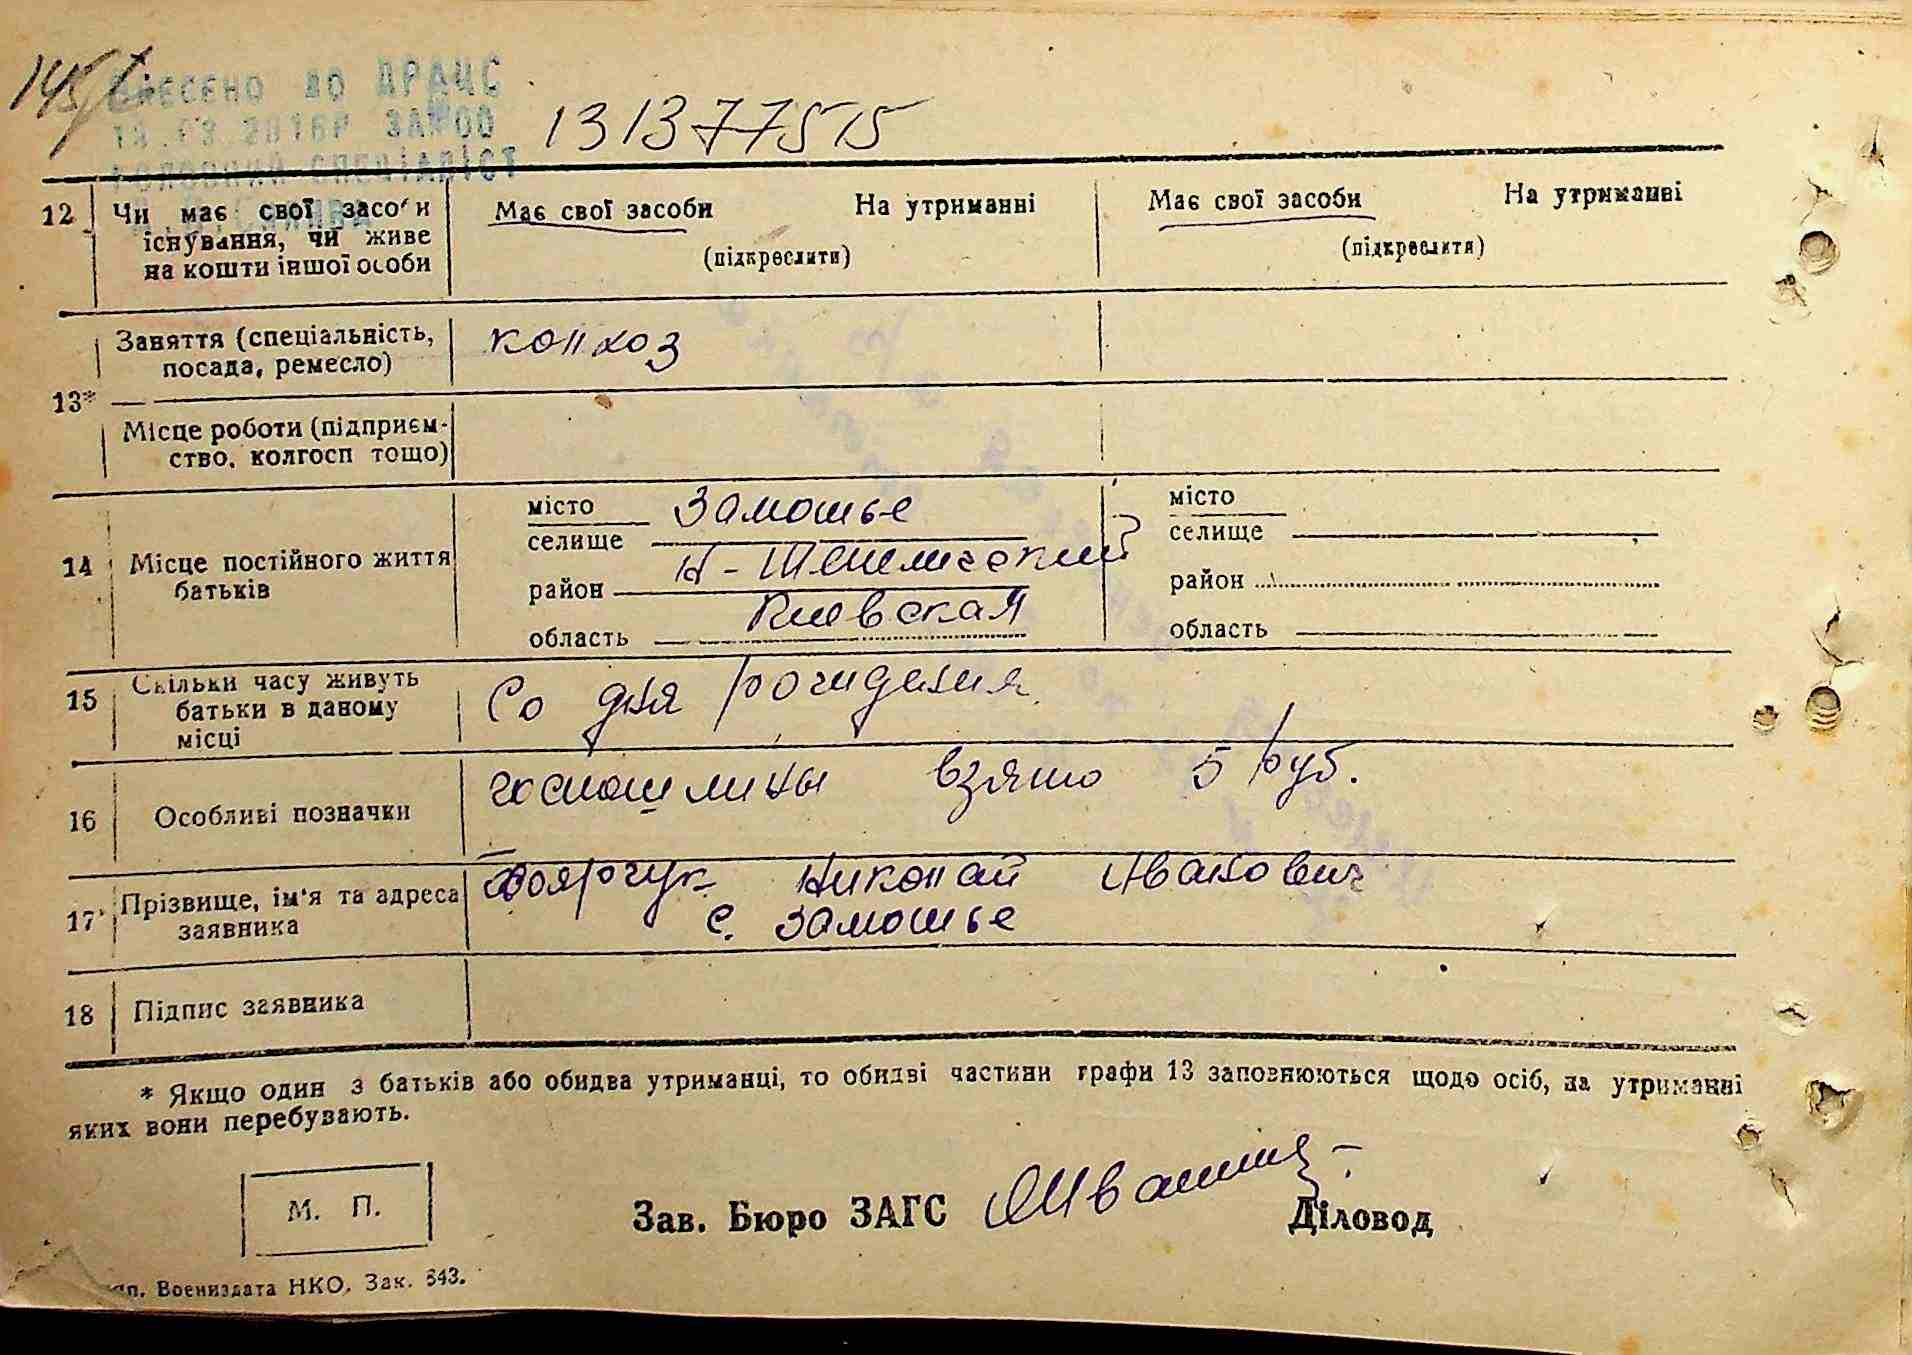 ВНЕСЕНО ДО ДРАЦС
ГОЛОВНИЙ СПЕЦІАЛІСТ
131377515
12 Чи має свої засоби існування, чи живе на кошти іншої особи
Має свої засоби На утриманні
(підкреслити)
Має свої засоби На утриманні
(підкреслити)
13*
Заняття (спеціальність,
посада, ремесло)
колхоз
Місце роботи (підприєм-
ство, колгосп тощо)
14 Місце постійного життя
батьків
місто
селище
Замошье
район Н-Шепеличский
область Киевская
місто
селище
район
область
15 Скільки часу живуть
батьки в даному
місці
Со дня рождения
16 Особливі позначки
госпошлины взято 5 руб.
17 Прізвище, ім'я та адреса
заявника
Боярчук Николай Иванович
с. Замошье
18 Підпис заявника
* Якщо один з батьків або обидва утриманці, то обидві частини графи 13 заповнюються щодо осіб, на утриманні
яких вони перебувають.
М. П.
Зав. Бюро ЗАГС
Діловод
Воениздата НКО. Зак. 643.